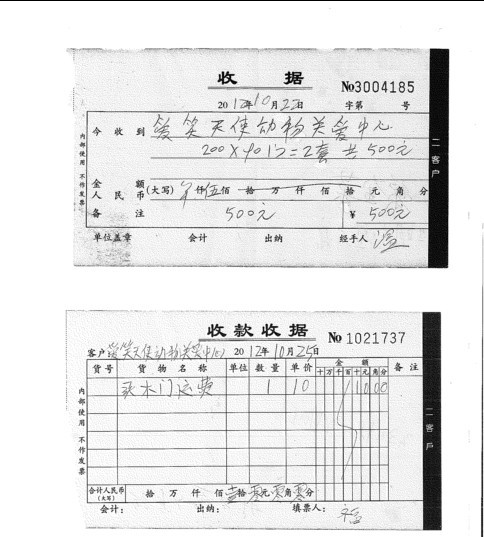 收 据
No3004185
2012年10月22日 字第 号
今 收 到 爱笑天使动物关爱中心
200X90 门=2套 共500元
金 额
人 民 币 (大写) 仟 伍 佰 拾 万 仟 佰 拾 元 角 分
备 注 500元 ¥ 500元
单位盖章 会计 出纳 经手人 温
内部使用 不作发票
二 客户
收款收据
No 1021737
客户 爱笑天使动物关爱中心 2012年10月25日
货号 货 物 名 称 单位 数 量 单 价 金 额 备 注
十 万 千 百 十 元 角 分
买木门运费 1 10 1 0 0 0
合计人民币
(大写) 拾 万 仟 佰 壹拾 零元 零角 零分
会计: 出纳: 填票人:
内部使用 不作发票
二 客户